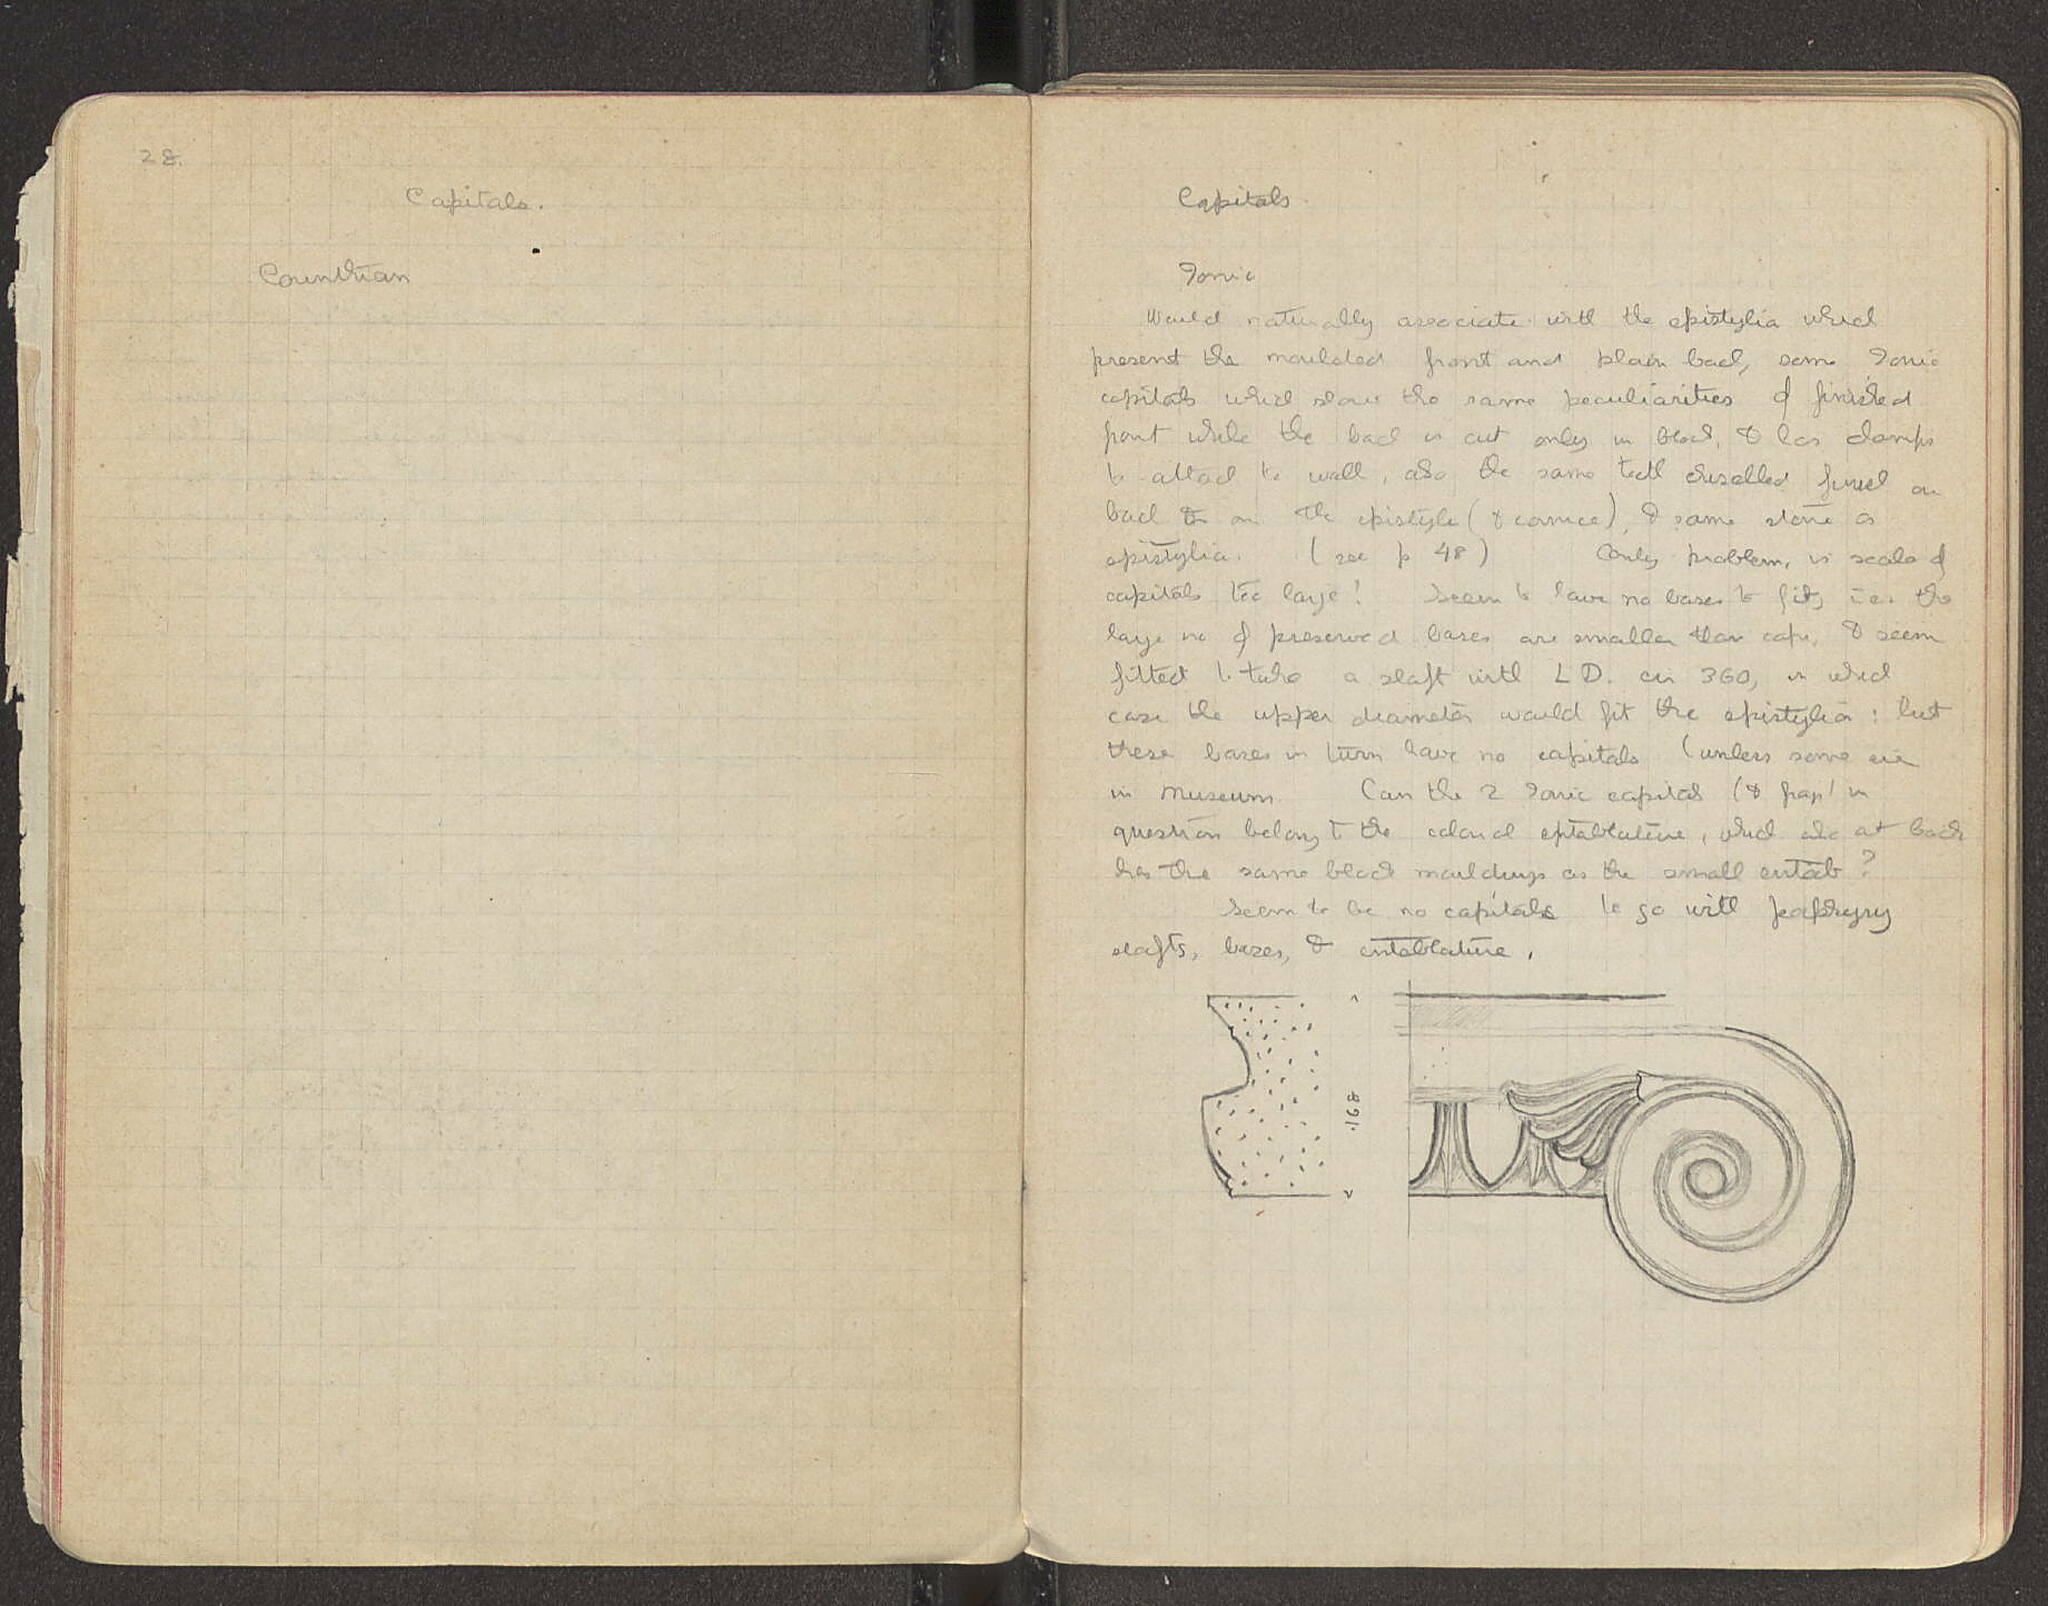 28.
Capitals.
Corinthian
Capitals.
Ionic
Would naturally associate with the epistylia which
present the moulded front and plain back, some Ionic
capitals which show the same peculiarities of finished
front while the back is cut only in block, & has clamps
to attach to wall, also the same tooth chiselled finish on
back as on the epistyle (& cornice), & same stone as
epistylia. (see p 48) Only problem, is scale of
capitals too large! Seem to have no bases to fit, i.e. the
large no of preserved bases are smaller than caps, & seem
fitted to take a shaft with L D. cir 360, in which
case the upper diameter would fit the epistylia: but
these bases in turn have no capitals (unless some are
in museum Can the 2 Ionic capitals (& frag' in
question belong to the colonal entablature, which also at back
has the same block mouldings as the small entab?
Seem to be no capitals to go with porphyry
shafts, bases, & entablature.
.168